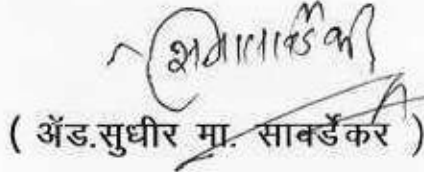 ( ॲड.सुधीर मा. सावर्डेकर )